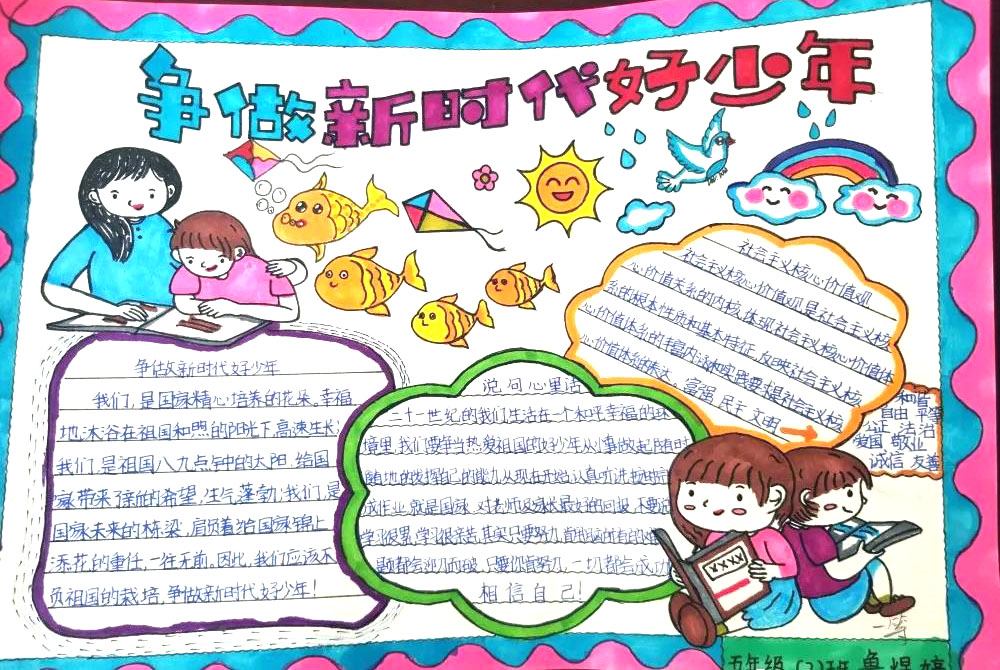 争做新时代好少年
争做新时代好少年
我们，是国家精心培养的花朵。幸福
地沐浴在祖国和煦的阳光下,高速生长
我们,是祖国八九点钟的太阳.给国
家带来了崭新的希望,生气蓬勃;我们,是
国家未来的栋梁,肩负着给国家锦上
添花的重任,一往无前.因此,我们应该不
负祖国的栽培,争做新时代好少年!
说句心里话
二十一世纪的我们生活在一个和平幸福的环
境里,我们要争当热爱祖国的好少年从小事做起,随时
随地的发挥自己的能力从现在开始认真听讲按时完
成作业,就是国家、对老师及家长最好的回报,不要说
学习很累,学习很辛苦,其实只要努力,首先所有的难
题都会迎刃而破,只要你肯努力,一切都会成功
相信自己!
社会主义核心价值观
社会主义核心价值观是社会主义核
心价值体系的内核,体现社会主义核心价值体
系的根本性质和基本特征,反映社会主义核
心价值体系的丰富内涵和实践要求,是社会主义核
心价值体系的 。富强 民主 文明
和谐
自由 平等
公正 法治
爱国 敬业
诚信 友善
XXXX
一等
五年级 (2)班